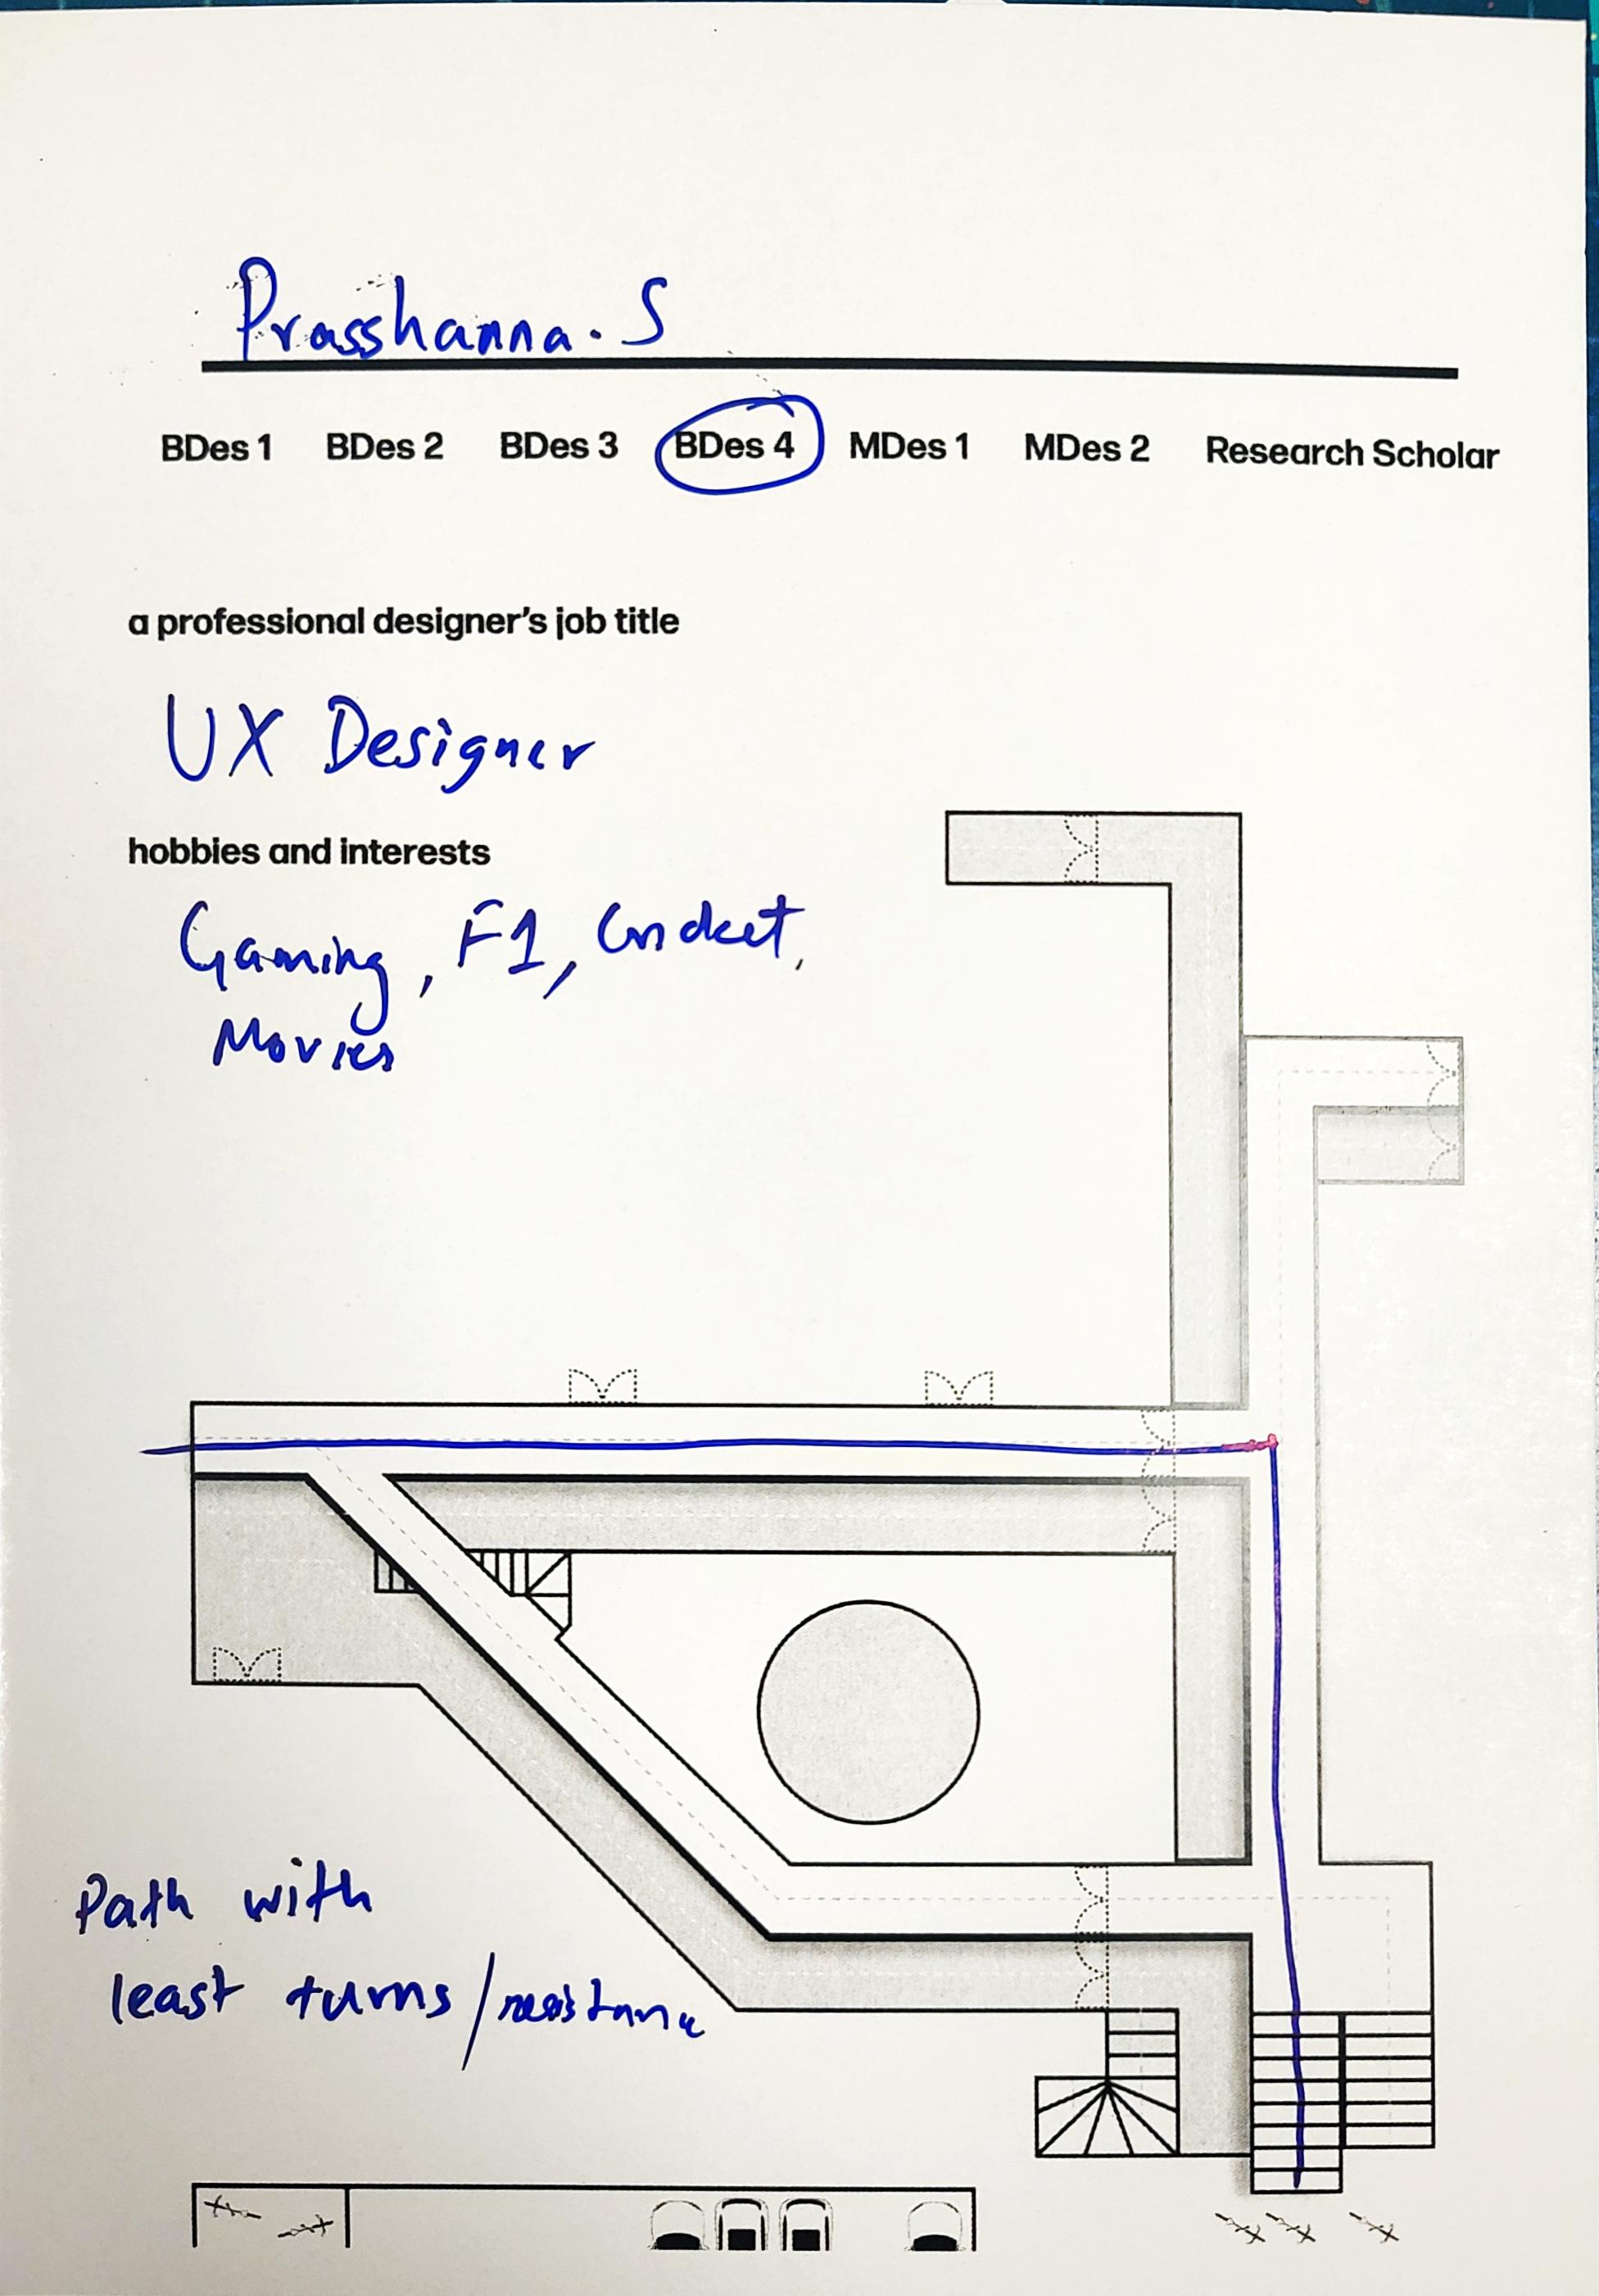 Prasshanna. S
BDes 1 BDes 2 BDes 3 BDes 4 MDes 1 MDes 2 Research Scholar
a professional designer's job title
UX Designer
hobbies and interests
Gaming, F1, Cricket,
Movies
Path with
least turns/resistance